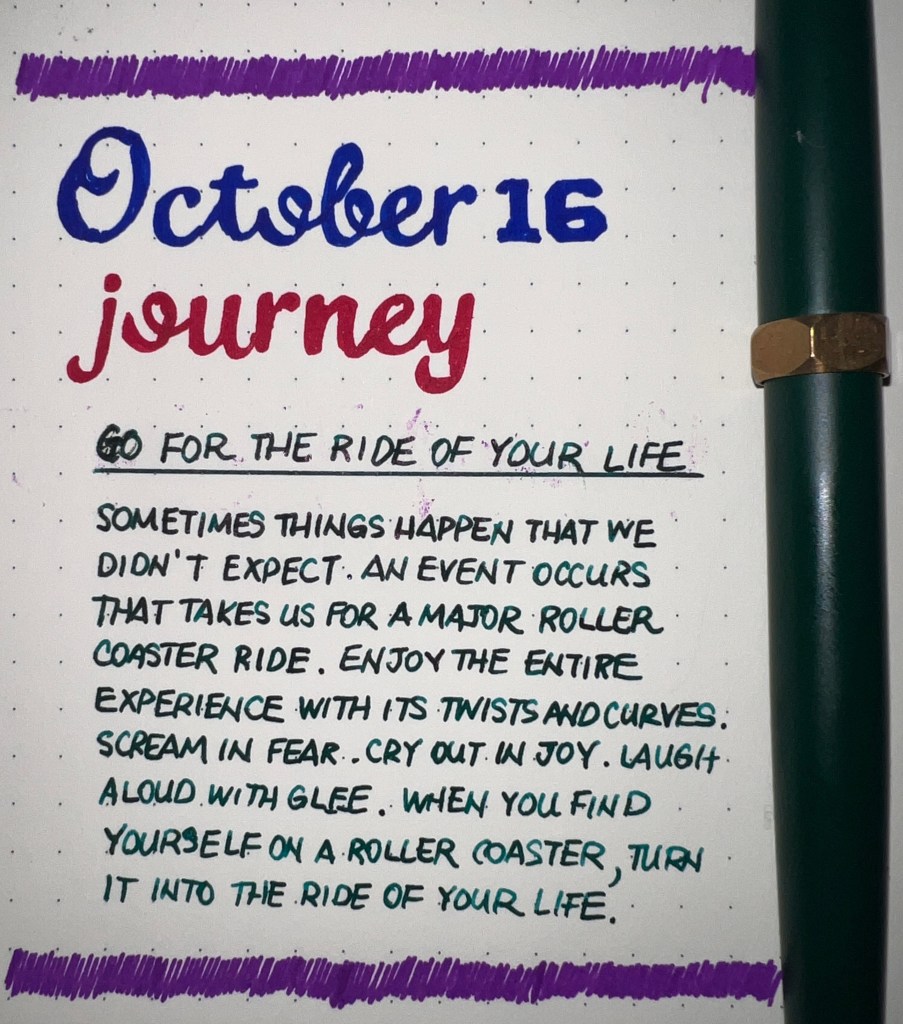 October 16
journey
GO FOR THE RIDE OF YOUR LIFE
SOMETIMES THINGS HAPPEN THAT WE
DIDN'T EXPECT. AN EVENT OCCURS
THAT TAKES US FOR A MAJOR ROLLER
COASTER RIDE. ENJOY THE ENTIRE
EXPERIENCE WITH ITS TWISTS AND CURVES.
SCREAM IN FEAR. CRY OUT IN JOY. LAUGH
ALOUD WITH GLEE. WHEN YOU FIND
YOURSELF ON A ROLLER COASTER, TURN
IT INTO THE RIDE OF YOUR LIFE.